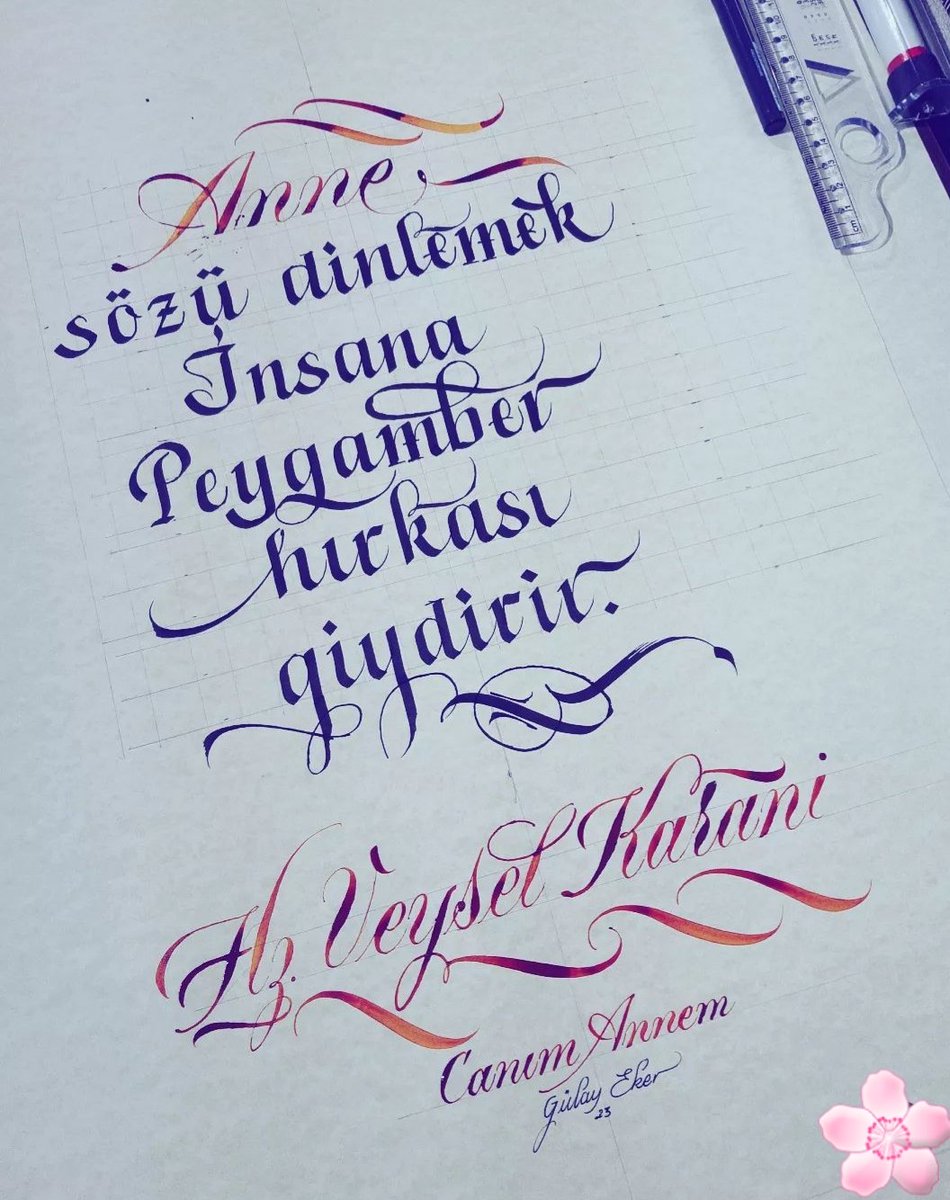 Anne
sözü dinlemek
İnsana
Peygamber
hırkası
giydirir.
Hz. Veysel Karani
Canım Annem
Gülay Eker
23